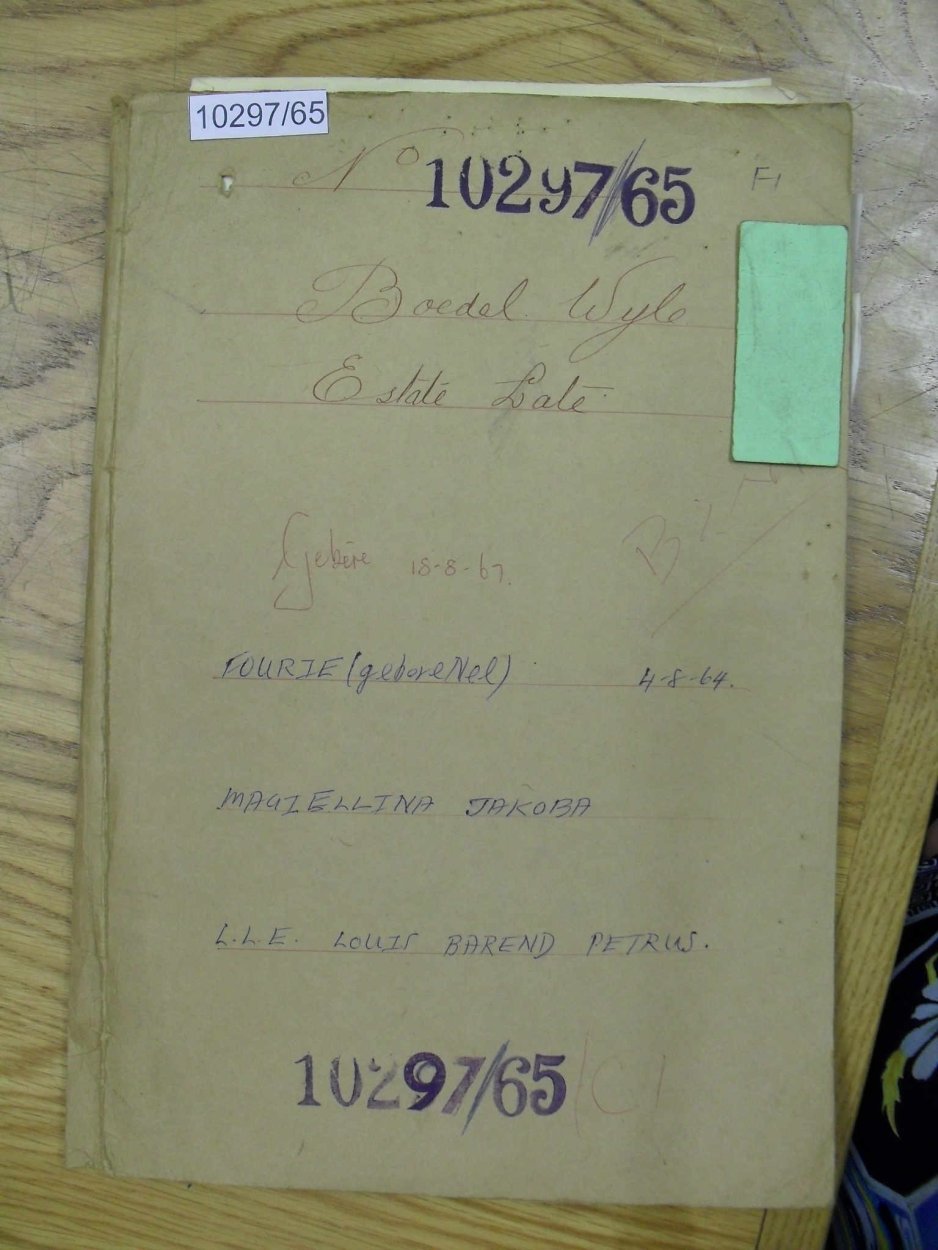 10297/65
No 10297/65 F1
Boedel Wyle
Estate Late
18-8-67.
FOURIE (gebore Nel) 4-8-64.
MAGIELLINA JAKOBA
L.L.E. LOUIS BAREND PETRUS.
10297/65 C1